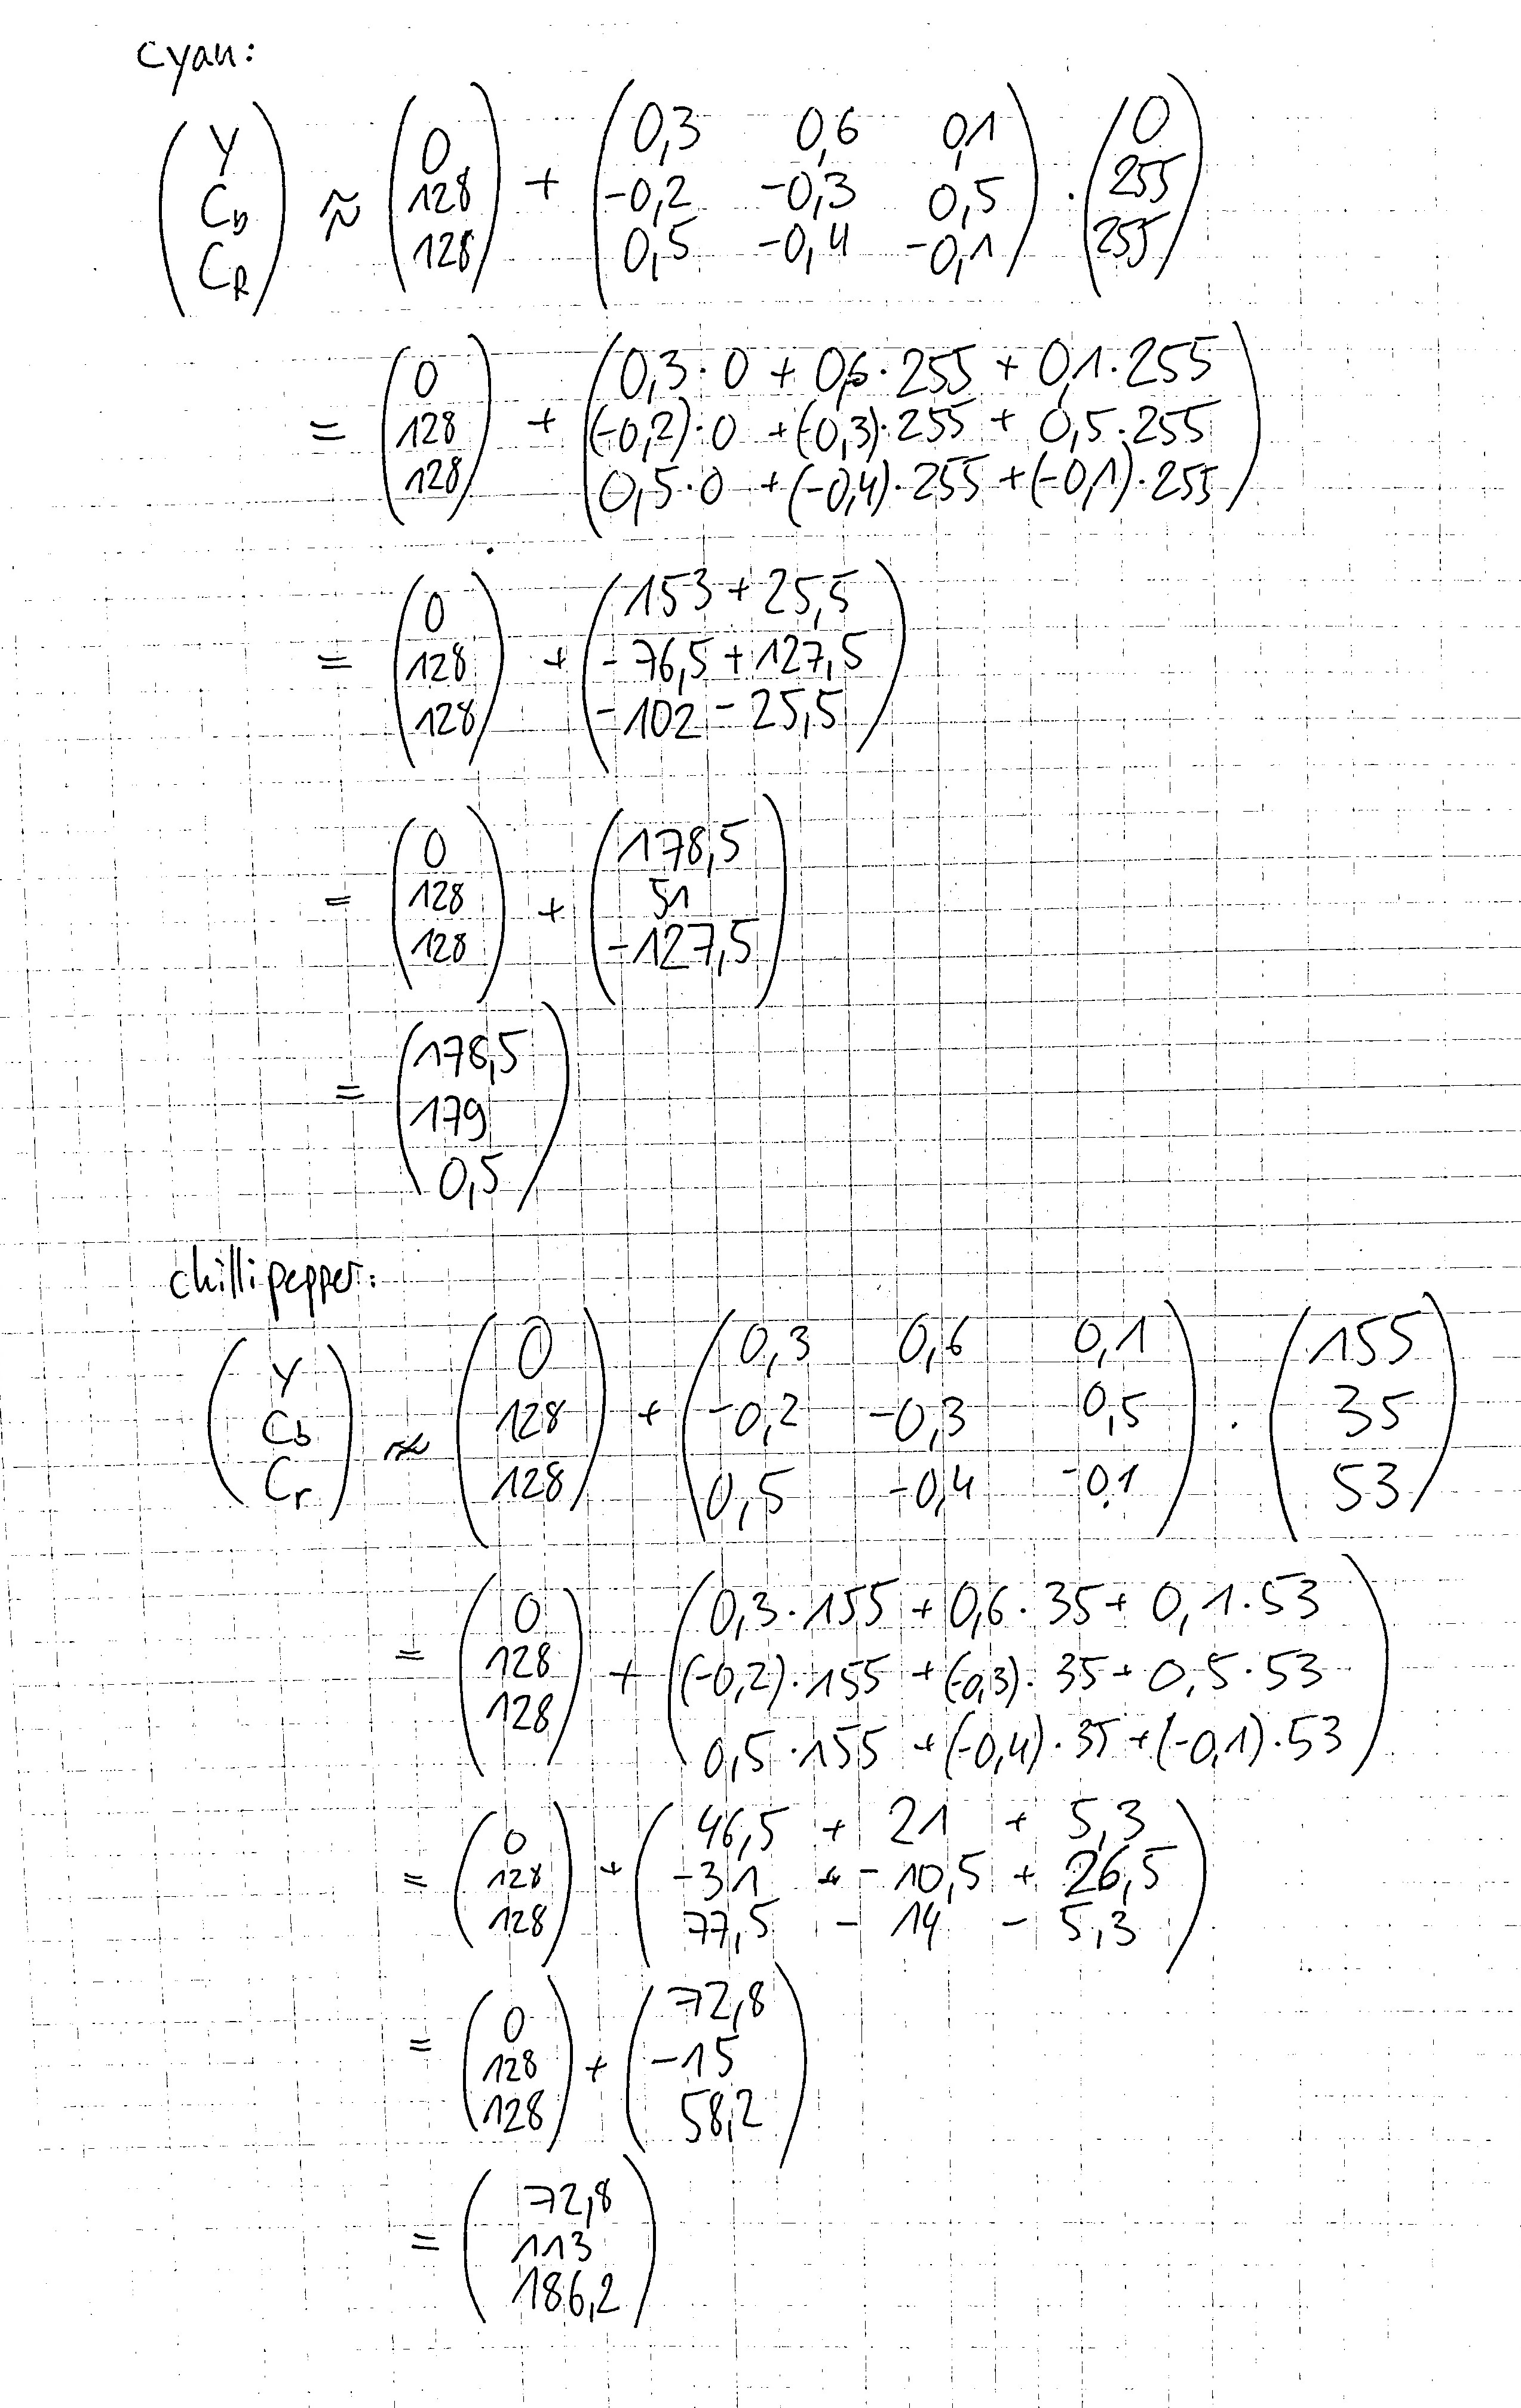 Cyan:
(Y Cb CR) ≈ (0 128 128) + (0,3 0,6 0,1 -0,2 -0,3 0,5 0,5 -0,4 -0,1) · (0 255 255)
= (0 128 128) + (0,3·0 + 0,6·255 + 0,1·255 (-0,2)·0 + (-0,3)·255 + 0,5·255 0,5·0 + (-0,4)·255 + (-0,1)·255)
= (0 128 128) + (153 + 25,5 -76,5 + 127,5 -102 - 25,5)
= (0 128 128) + (178,5 51 -127,5)
= (178,5 179 0,5)
chillipepper:
(Y Cb Cr) ≈ (0 128 128) + (0,3 0,6 0,1 -0,2 -0,3 0,5 0,5 -0,4 -0,1) · (155 35 53)
= (0 128 128) + (0,3·155 + 0,6·35 + 0,1·53 (-0,2)·155 + (-0,3)·35 + 0,5·53 0,5·155 + (-0,4)·35 + (-0,1)·53)
= (0 128 128) + (46,5 + 21 + 5,3 -31 + -10,5 + 26,5 77,5 - 14 - 5,3)
= (0 128 128) + (72,8 -15 58,2)
= (72,8 113 186,2)